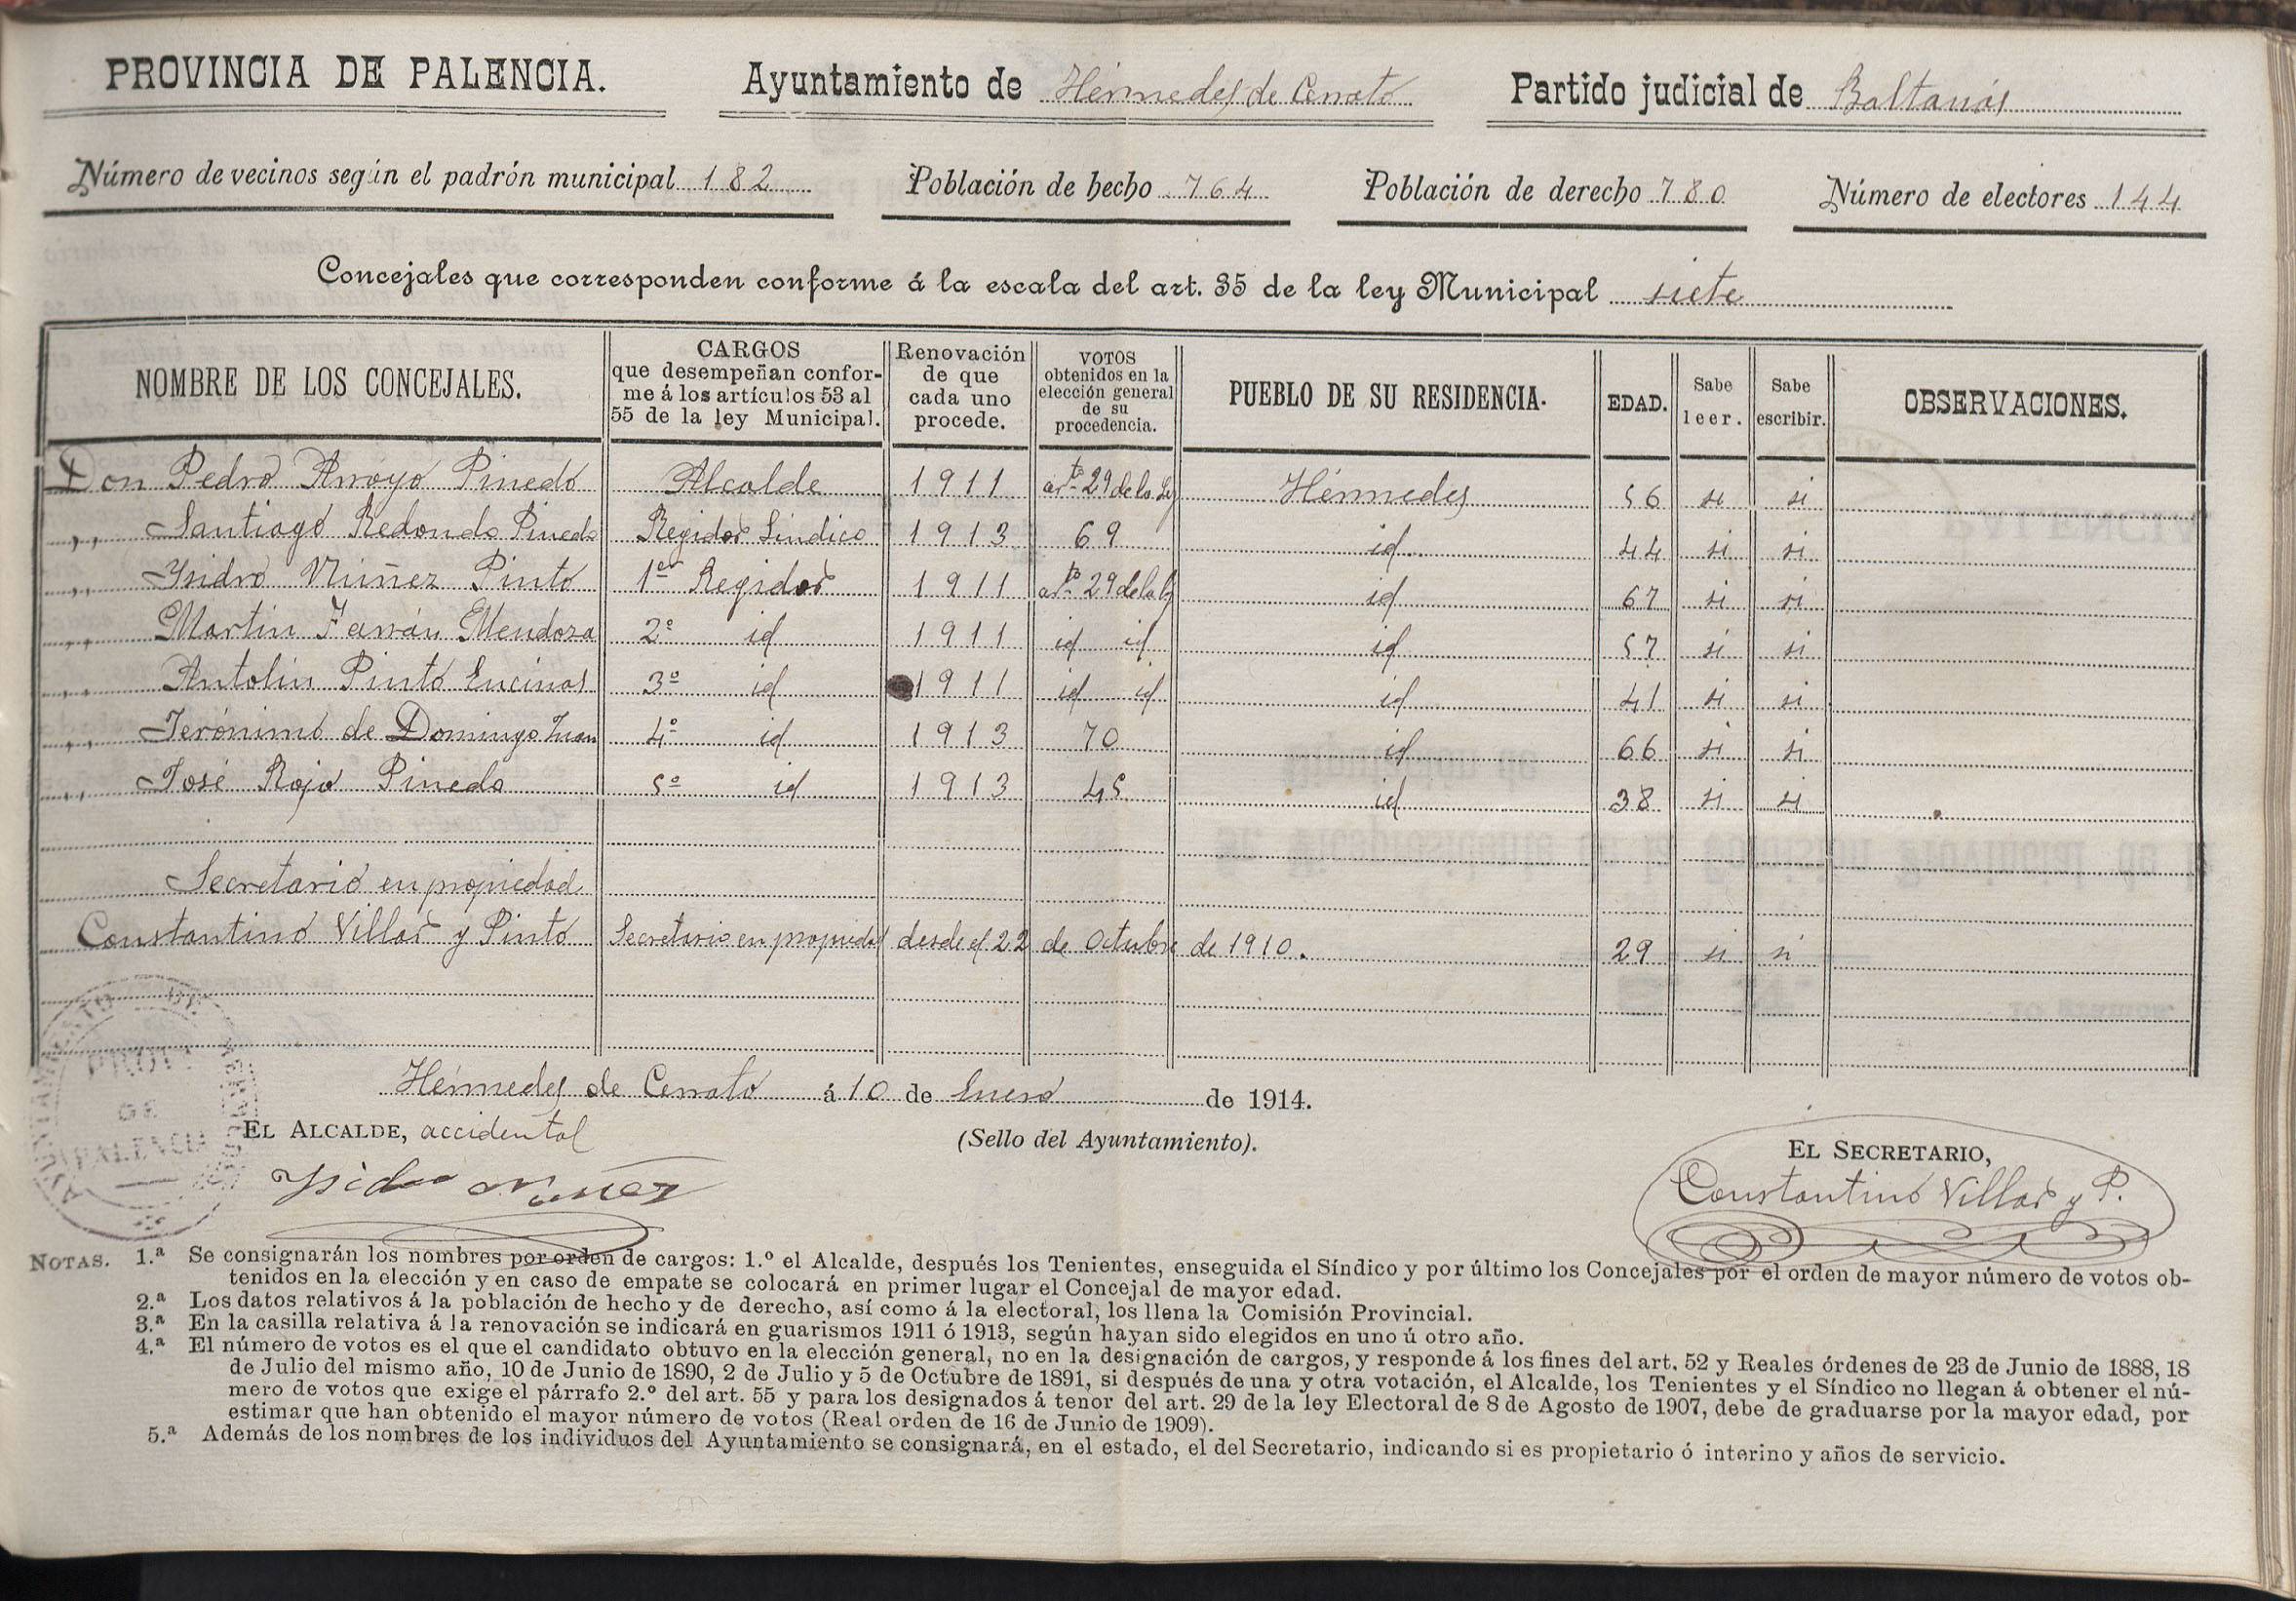 PROVINCIA DE PALENCIA. Ayuntamiento de Hérmedes de Cerrato Partido judicial de Baltanás
Número de vecinos según el padrón municipal 182 Población de hecho 764 Población de derecho 780 Número de electores 144
Concejales que corresponden conforme á la escala del art. 35 de la ley Municipal siete
NOMBRE DE LOS CONCEJALES. CARGOS que desempeñan conforme á los artículos 53 al 55 de la ley Municipal. Renovación de que cada uno procede. VOTOS obtenidos en la elección general de su procedencia. PUEBLO DE SU RESIDENCIA. EDAD. Sabe leer. Sabe escribir. OBSERVACIONES.
Don Pedro Arroyo Pinedo Alcalde 1911 arto 29 de la Ley Hérmedes 56 si si
,, Santiago Redondo Pinedo Regidor Síndico 1913 69 id 44 si si
,, Ysidro Núñez Pinto 1er Regidor 1911 arto 29 de la ley id 67 si si
,, Martín Farrán Mendoza 2º id 1911 id id id 57 si si
,, Antolín Pinto Encinas 3º id 1911 id id id 41 si si
,, Jerónimo de Domingo Juan 4º id 1913 70 id 66 si si
,, José Rojo Pinedo 5º id 1913 45 id 38 si si
Secretario en propiedad
Constantino Villar y Pinto Secretario en propiedad desde el 22 de Octubre de 1910. 29 si si
Hérmedes de Cerrato á 10 de Enero de 1914.
EL ALCALDE, accidental (Sello del Ayuntamiento). EL SECRETARIO,
Ysidro Nuñez Constantino Villar y P.
AYUNTAMIENTO DE
PROV.
DE
PALENCIA
NOTAS. 1.ª Se consignarán los nombres por orden de cargos: 1.º el Alcalde, después los Tenientes, enseguida el Síndico y por último los Concejales por el orden de mayor número de votos ob-
tenidos en la elección y en caso de empate se colocará en primer lugar el Concejal de mayor edad.
2.ª Los datos relativos á la población de hecho y de derecho, así como á la electoral, los llena la Comisión Provincial.
3.ª En la casilla relativa á la renovación se indicará en guarismos 1911 ó 1913, según hayan sido elegidos en uno ú otro año.
4.ª El número de votos es el que el candidato obtuvo en la elección general, no en la designación de cargos, y responde á los fines del art. 52 y Reales órdenes de 23 de Junio de 1888, 18
de Julio del mismo año, 10 de Junio de 1890, 2 de Julio y 5 de Octubre de 1891, si después de una y otra votación, el Alcalde, los Tenientes y el Síndico no llegan á obtener el nú-
mero de votos que exige el párrafo 2.º del art. 55 y para los designados á tenor del art. 29 de la ley Electoral de 8 de Agosto de 1907, debe de graduarse por la mayor edad, por
estimar que han obtenido el mayor número de votos (Real orden de 16 de Junio de 1909).
5.ª Además de los nombres de los individuos del Ayuntamiento se consignará, en el estado, el del Secretario, indicando si es propietario ó interino y años de servicio.